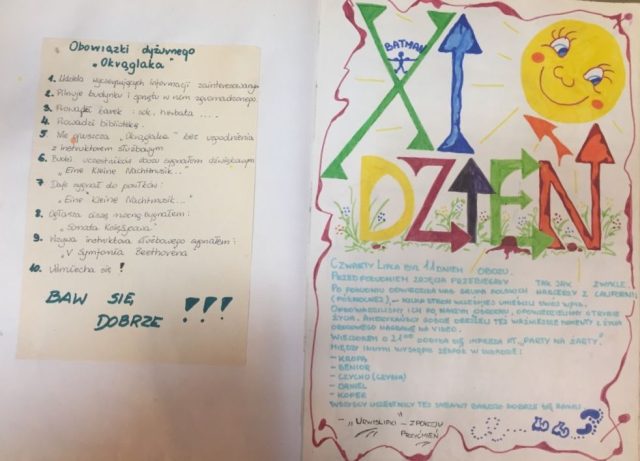 Obowiązki dyżurnego
"Okrąglaka"
1. Udziela wyczerpujących informacji zainteresowanym
2. Pilnuje budynku i sprzętu w nim zgromadzonego.
3. Prowadzi barek: sok, herbata ....
4. Prowadzi bibliotekę.
5 Nie opuszcza "Okrąglaka" bez uzgodnienia
z instruktorem służbowym
6. Budzi uczestników obozu sygnałem dźwiękowym
"Eine Kleine Nachtmusik..."
7 Daje sygnał do posiłków:
"Eine Kleine Nachtmusik..."
8. Ogłasza ciszę nocną sygnałem:
"Sonata Księżycowa"
9. Wzywa instruktora służbowego sygnałem:
"V Symfonia Beethovena
10. Uśmiecha się!
BAW SIĘ
DOBRZE !!!
XI
BATMAN
DZIEŃ
CZWARTY LIPCA BYŁ 11 DNIEM OBOZU.
PRZED POŁUDNIEM ZAJĘCIA PRZEBIEGAŁY TAK JAK ZWYKLE.
PO POŁUDNIU ODWIEDZIŁA NAS GRUPA POLSKICH HARCERZY Z CALIFORNI
(PÓŁNOCNEJ), - KILKA STRON WCZEŚNIEJ UMIEŚCILI SWÓJ WPIS.
OPROWADZILIŚMY ICH PO NASZYM OŚRODKU, OPOWIEDZIELIŚMY O TRYBIE
ŻYCIA. AMERYKAŃSCY GOŚCIE WAŻNIEJSZE MOMENTY Z ŻYCIA
OBOZOWEGO NAGRALI NA VIDEO.
WIECZOREM O 21⁰⁰ ODBYŁA SIĘ IMPREZA PT. "PARTY NA ŻARTY".
MIĘDZY INNYMI WYSTĄPIŁ ZESPÓŁ W SKŁADZIE:
- KROPA
- SENIOR
- CZYCHO (CZYŻYK)
- DANIEL
- KOPER
WSZYSCY UCZESTNICY TEJ ZABAWY BARDZO DOBRZE SIĘ BAWILI
- "URWISLIPKI" - ZPOKOJU
PROMIEŃ